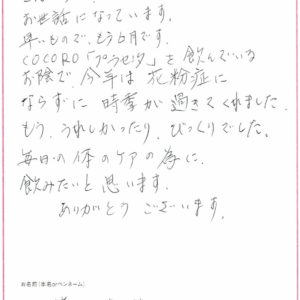 お世話になっています。
早いもので、もう6月です。
COCORO「プラセンタ」を飲んでいる
お陰で、今年は花粉症に
ならずに時季が過ぎてくれました。
もう、うれしかったり、びっくりでした。
毎日の体のケアの為に、
飲みたいと思います。
ありがとうございます。
お名前(本名orペンネーム)